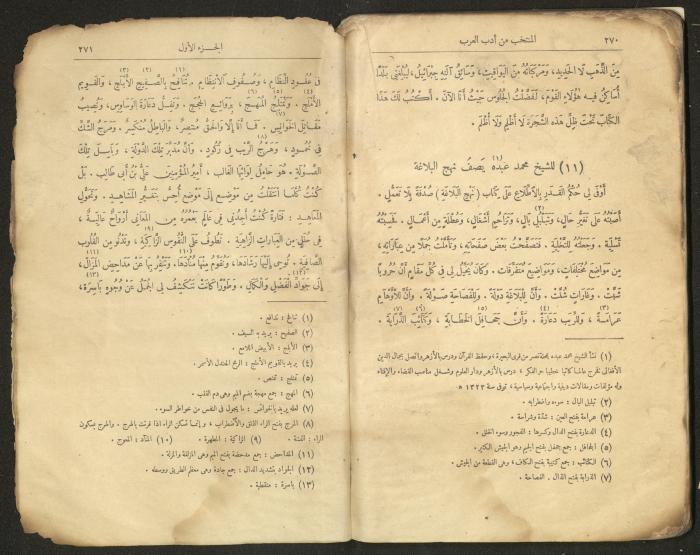 ٢٧٠
المنتخب من أدب العرب
مِنَ الذَّهَبِ لَا الْحَدِيدِ، وَمَرْكَبَاتُهُ مِنَ الْيَوَاقِيتِ، وَسَائِقُ آلَتِهِ جِبْرَائِيلُ، لِيُبْلِغَنِي بَلَدًا
أُمَاكِنُ فِيهِ هٰؤُلَاءِ الْقَوْمَ، لَفَضَّلْتُ الْجُلُوسَ حَيْثُ أَنَا الْآنَ. أَكْتُبُ لَكَ هٰذَا
الْكِتَابَ تَحْتَ ظِلِّ هٰذِهِ الشَّجَرَةِ لَا أَظْلِمُ وَلَا أُظْلَمُ.
(١١) للشيخ محمد عبده (١) يَصِفُ نهج البلاغة
أَوْفَى لِي حُكْمُ الْقَدَرِ بِالِاطِّلَاعِ عَلَى كِتَابِ (نَهْجِ الْبَلَاغَةِ) صُدْفَةً بِلَا تَعَمُّلٍ.
أَصَبْتُهُ عَلَى تَغَيُّرِ حَالٍ، وَتَبَلْبُلِ بَالٍ (٢)، وَتَزَاحُمِ أَشْغَالٍ، وَعُطْلَةٍ مِنْ أَعْمَالٍ. فَحَسِبْتُهُ
تَسْلِيَةً. وَجَعَلْتُهُ لِلتَّخْلِيَةِ. فَتَصَفَّحْتُ بَعْضَ صَفَحَاتِهِ، وَتَأَمَّلْتُ جُمَلًا مِنْ عِبَارَاتِهِ،
مِنْ مَوَاضِعَ مُخْتَلِفَاتٍ، وَمَوَاضِيعَ مُتَفَرِّقَاتٍ. وَكَانَ يُخَيَّلُ لِي فِي كُلِّ مَقَامٍ أَنَّ حُرُوبًا
شَبَّتْ. وَغَارَاتٍ شُنَّتْ. وَأَنَّ لِلْبَلَاغَةِ دَوْلَةً. وَلِلْفَصَاحَةِ صَوْلَةً. وَأَنَّ لِلْأَوْهَامِ
عَرَامَةً (٣)، وَلِلرَّيْبِ دَعَارَةً (٤). وَأَنَّ جَحَافِلَ (٥) الْخَطَابَةِ، وَكَتَائِبَ (٦) الذَّرَابَةِ (٧)
(١) نشأ الشيخ محمد عبده بمحلة نصر من قرى البحيرة، وحفظ القرآن ودرس بالأزهر واتصل بجمال الدين
الأفغاني فخرج عالما كاتبا خطيبا حر الفكر، درس بالأزهر ودار العلوم وشغل مناصب القضاء والإفتاء
وله مؤلفات ومقالات دينية واجتماعية وسياسية، توفى سنة ١٣٢٣ هـ.
(٢) تبلبل البال: سوءه واضطرابه.
(٣) عرامة بفتح العين: شدّة وشراسة.
(٤) الدعارة بفتح الدال وكسرها: الفجور وسوء الخلق.
(٥) الجحافل: جمع جحفل بفتح الجيم وهو الجيش الكثير.
(٦) الكتائب: جمع كتيبة بفتح الكاف، وهي القطعة من الجيش.
(٧) الذرابة بفتح الذال. الفصاحة.
الجزء الأول
٢٧١
فِي عُقُودِ النِّظَامِ، وَصُفُوفِ الِانْتِظَامِ. تُنَافِحُ (١) بِالصَّفِيحِ (٢) الْأَبْلَجِ (٣)، وَالْقَوِيمِ
الْأَمْلَجِ (٤). وَتَمْتَلِجُ (٥) الْمُهَجَ (٦)، بِرَوَائِعِ الْحُجَجِ. وَتَفُلُّ دَعَارَةَ الْوَسَاوِسِ، وَتُصِيبُ
مَقَاتِلَ الْخَوَانِسِ (٧). فَمَا أَنَا إِلَّا وَالْحَقُّ مُنْتَصِرٌ، وَالْبَاطِلُ مُنْكَسِرٌ. وَمَرْجُ الشَّكِّ
فِي خُمُودٍ، وَهَرْجُ (٨) الرَّيْبِ فِي رُكُودٍ. وَأَنَّ مُدَبِّرَ تِلْكَ الدَّوْلَةِ، وَبَاسِلَ تِلْكَ
الصَّوْلَةِ. هُوَ حَامِلُ لِوَائِهَا الْغَالِبُ، أَمِيرُ الْمُؤْمِنِينَ عَلِيُّ بْنُ أَبِي طَالِبٍ. بَلْ
كُنْتُ كُلَّمَا انْتَقَلْتُ مِنْ مَوْضِعٍ إِلَى مَوْضِعٍ أُحِسُّ بِتَغَيُّرِ الْمَشَاهِدِ. وَتَحَوُّلِ
الْمَعَاهِدِ: فَتَارَةً كُنْتُ أَجِدُنِي فِي عَالَمٍ يَعْمُرُهُ مِنَ الْمَعَانِي أَرْوَاحٌ عَالِيَةٌ،
فِي حُلَلٍ مِنَ الْعِبَارَاتِ الزَّاهِيَةِ. تَطُوفُ عَلَى النُّفُوسِ الزَّاكِيَةِ (٩). وَتَدْنُو مِنَ الْقُلُوبِ
الصَّافِيَةِ. تُوحِي إِلَيْهَا رَشَادَهَا، وَتُقَوِّمُ مِنْهَا مُنْآدَهَا (١٠). وَتَنْفِرُ بِهَا عَنْ مَدَاحِضِ (١١) الْمَزَالِّ،
إِلَى جَوَادِّ (١٢) الْفَضْلِ وَالْكَمَالِ. وَطَوْرًا كَانَتْ تَتَكَشَّفُ لِيَ الْجُمَلُ عَنْ وُجُوهٍ بَاسِرَةٍ (١٣)،
(١) تنافح: تدافع.
(٢) الصفيح: يريد به السيف.
(٣) الأبلج: الأبيض اللامع.
(٤) يريد بالقويم الأملج: الرمح المعتدل الأسمر.
(٥) تمتلج: تمتص.
(٦) المهج: جمع مهجة بضم الميم وهي دم القلب.
(٧) لعله يريد بالخوانس: ما يجول في النفس من خواطر السوء.
(٨) المرج بفتح الراء القلق والاضطراب، وإنما تسكن الراء اذا قرنت بالهرج. والهرج بسكون
الراء: الفتنة. (٩) الزاكية: المطهرة. (١٠) المنآد: المعوج.
(١١) المداحض: جمع مدحضة بفتح الميم وهي المزلقة والمزلة.
(١٢) الجواد بتشديد الدال: جمع جادة وهي معظم الطريق ووسطه.
(١٣) باسرة: متقطبة.